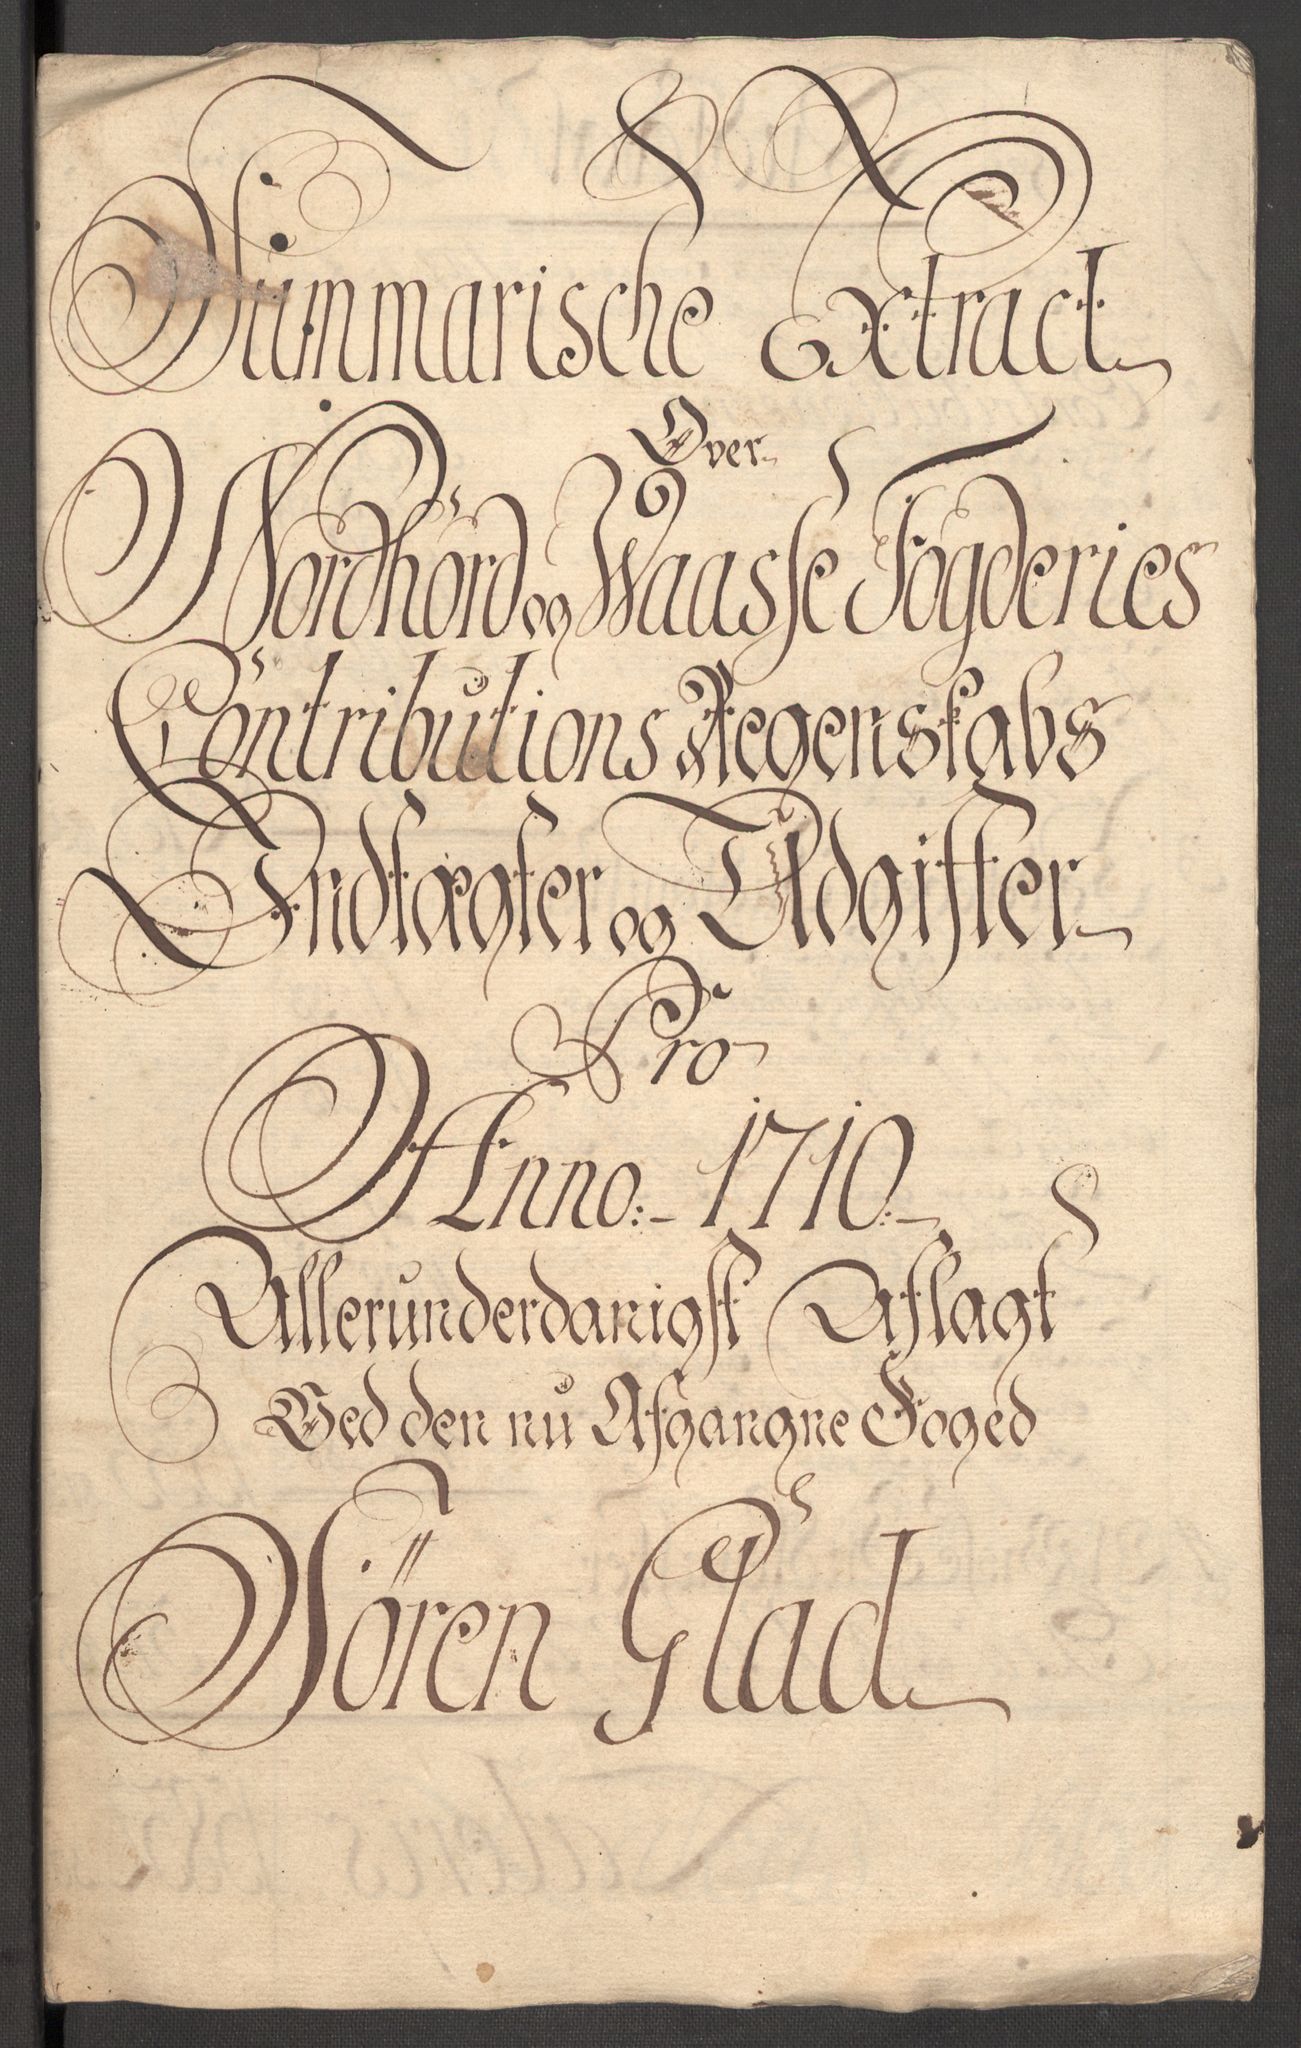 Summarische Extract
Over
Nordhord og Waasse Fogderies
Contributions Regenskabs
Indtægter og Udgifter
Pro
Anno:- 1710:-
Allerunderdanigst Aflagt
Ved den nu Afgangne Foged
Sören Glad